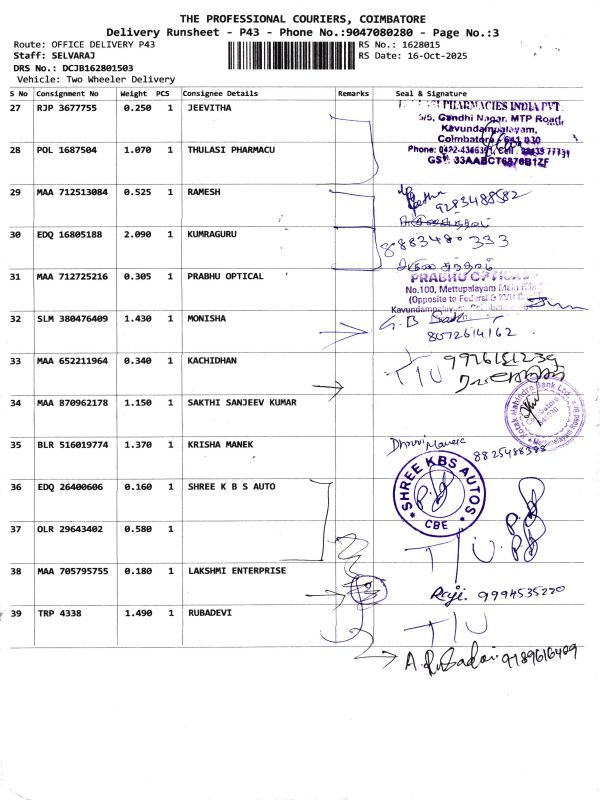 THE PROFESSIONAL COURIERS, COIMBATORE
Delivery Runsheet - P43 - Phone No.:9047080280 - Page No.:3
Route: OFFICE DELIVERY P43 RS No.: 1628015
Staff: SELVARAJ RS Date: 16-Oct-2025
DRS No.: DCJB162801503
Vehicle: Two Wheeler Delivery
S No Consignment No Weight PCS Consignee Details Remarks Seal & Signature
27 RJP 3677755 0.250 1 JEEVITHA
PHARMACIES INDIA PVT.
5/5, Gandhi Nagar, MTP Road,
Kavundampalayam,
Coimbatore - 641 030
28 POL 1687504 1.070 1 THULASI PHARMACU
29 MAA 712513084 0.525 1 RAMESH
9283488582
30 EDQ 16805188 2.090 1 KUMRAGURU
8883480333
31 MAA 712725216 0.305 1 PRABHU OPTICAL
PRABHU OPTICALS
No.100, Mettupalayam Main Road
(Opposite to Federal &
Kavundampalayam,
32 SLM 380476409 1.430 1 MONISHA
8072614162
33 MAA 652211964 0.340 1 KACHIDHAN
34 MAA 870962178 1.150 1 SAKTHI SANJEEV KUMAR
Kotak Mahindra Bank Ltd.
Coimbatore
35 BLR 516019774 1.370 1 KRISHA MANEK
Dhruvi Maneek
8825488388
36 EDQ 26400606 0.160 1 SHREE K B S AUTO
SHREE KBS AUTOS
CBE
37 OLR 29643402 0.580 1
38 MAA 705795755 0.180 1 LAKSHMI ENTERPRISE
Raji. 9994535220
39 TRP 4338 1.490 1 RUBADEVI
9789616409